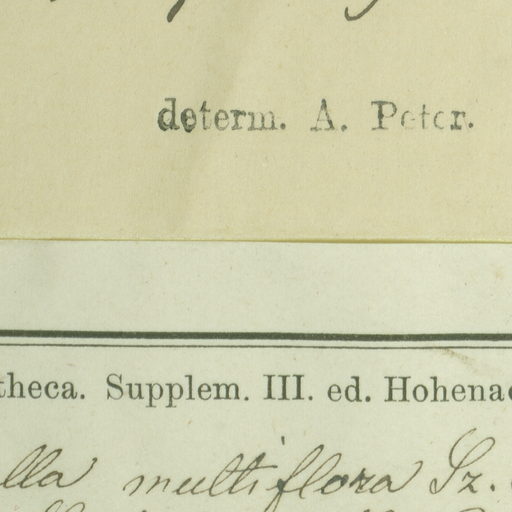 determ. A. Peter.
theca. Supplem. III. ed. Hohenac
lla multiflora Sz.